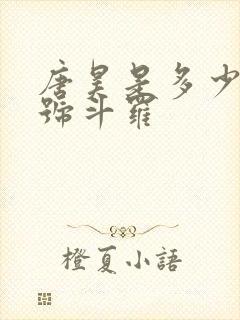 唐昊是多少
號斗羅
橙夏小語